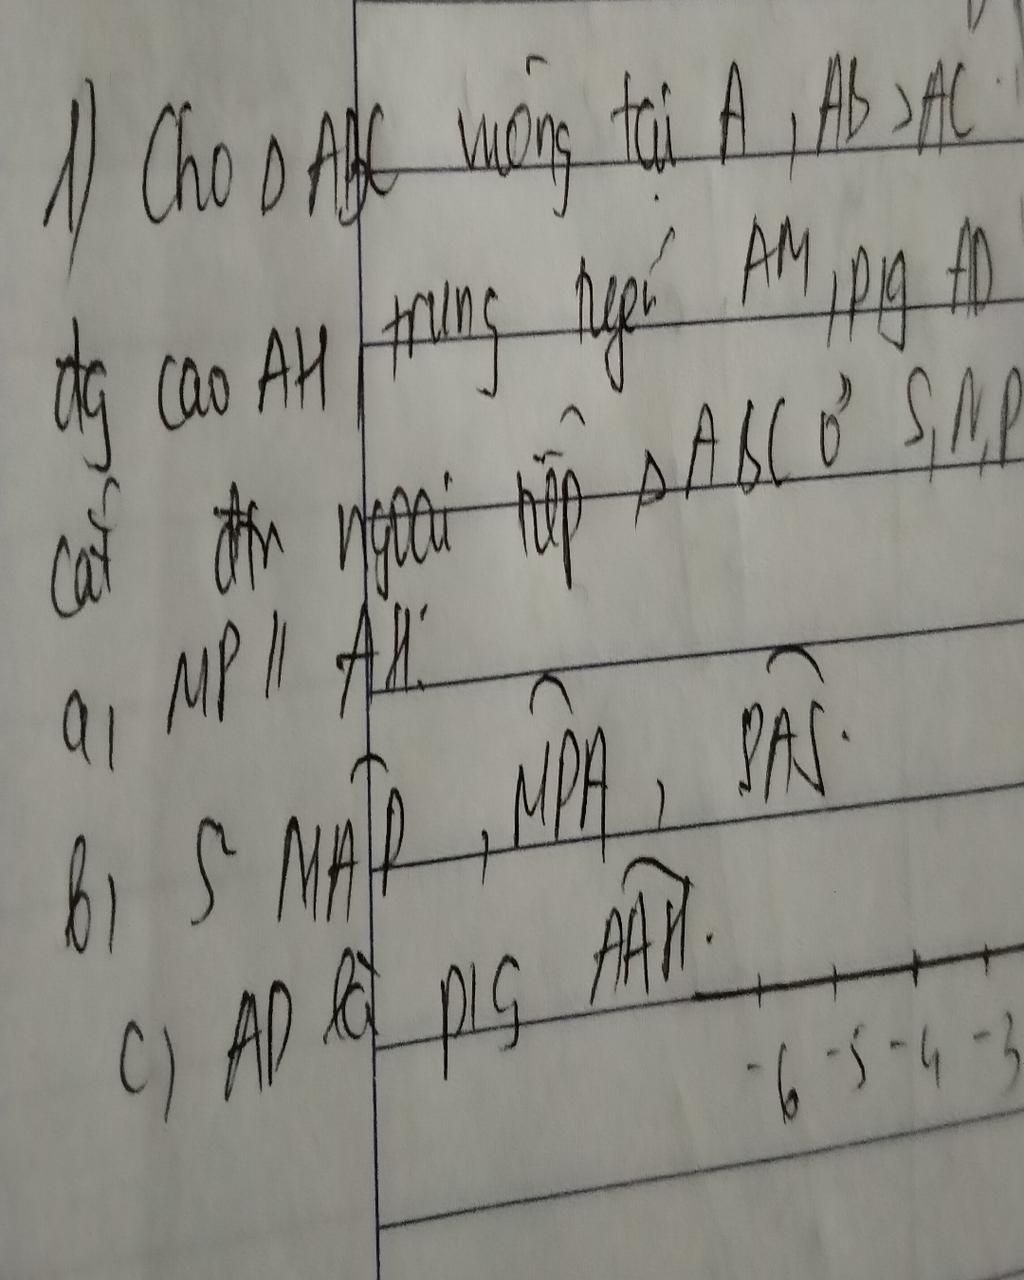 1) Cho Δ ABC vuông tại A, AB > AC
đg cao AH trung tuyến AM, p/g AD
cắt đtr ngoại tiếp Δ ABC ở S, N, P
a, MP // AH.
b, S MAP, MPA, PAS.
c) AD là p/g AAH.
-6 -5 -4 -3